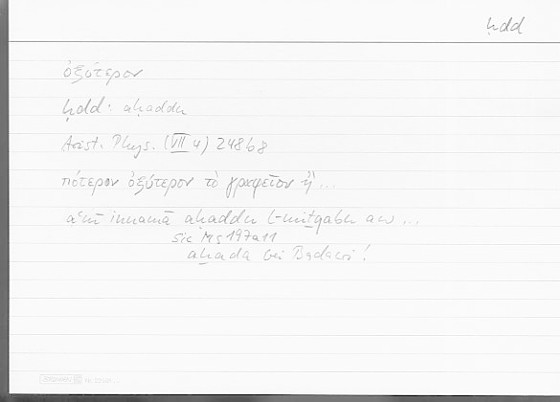 ḥdd
ὀξύτερον
ḥdd: aḥaddu
Arist. Phys. (VII 4) 248b8
πότερον ὀξύτερον τὸ γραφεῖον ἢ ...
a'nī innamā aḥaddu l-mitqabu aw ...
sic Ms 197a11
aḥada bei Badawi!